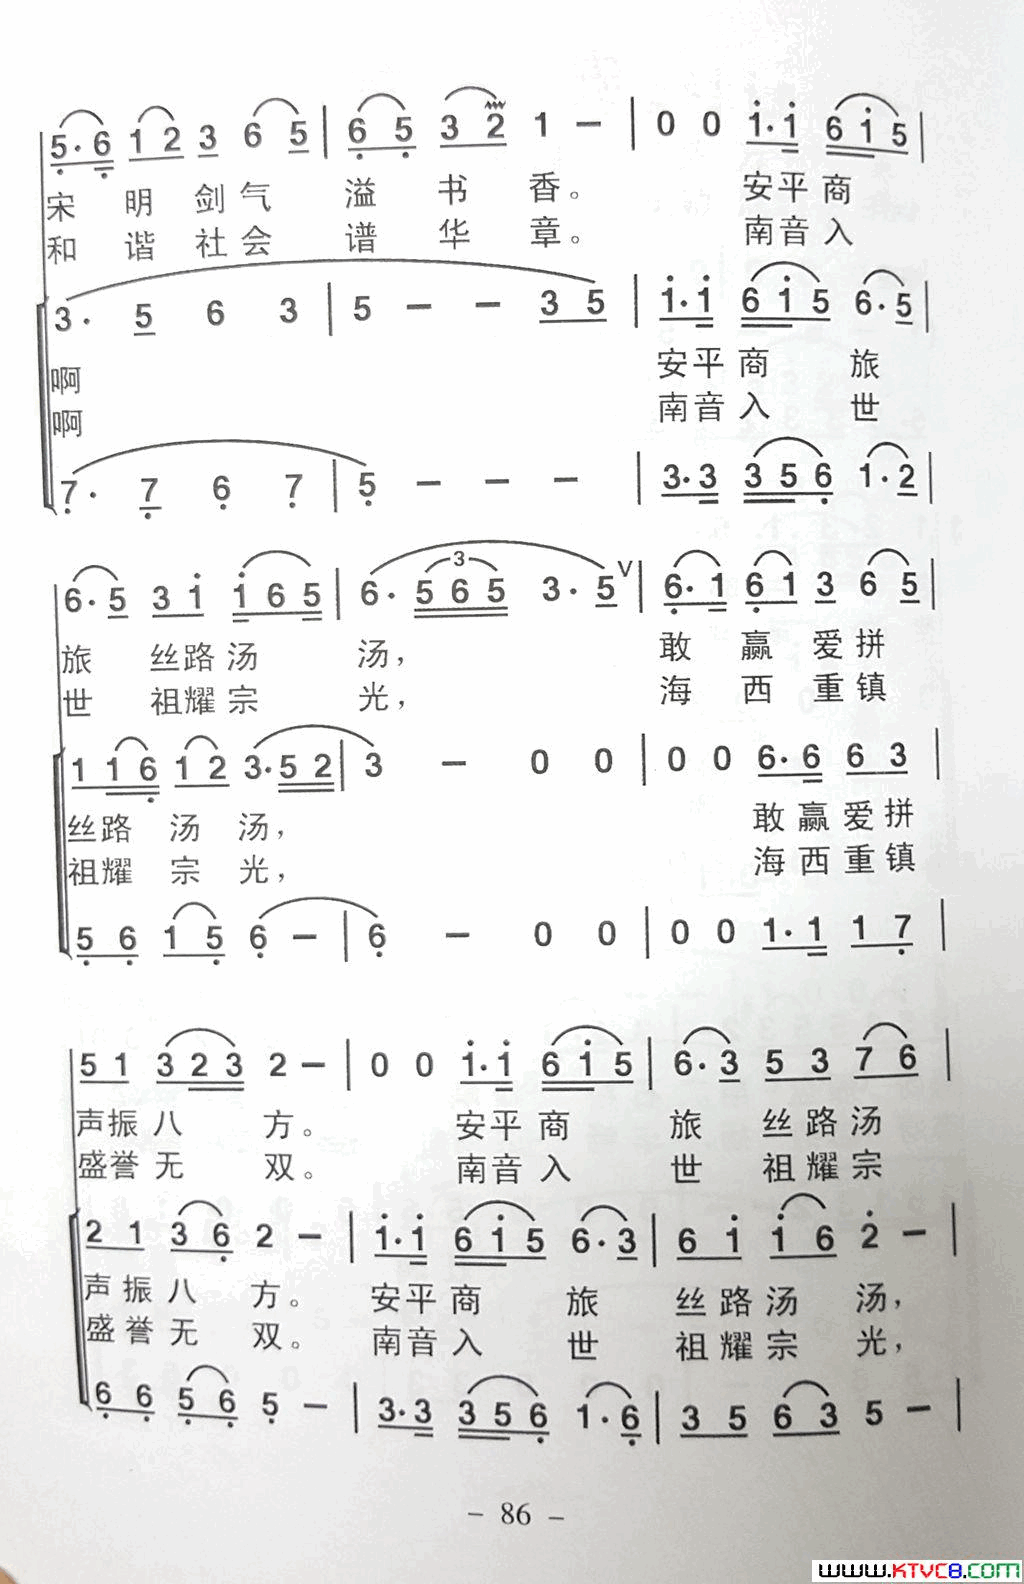 5·6 1 2 3 6 5 | 6 5 3 2 1 – | 0 0 1·1 6 1 5 |
宋 明 剑气 溢 书 香。 安平商
和 谐 社会 谱 华 章。 南音入
3· 5 6 3 | 5 – – 3 5 | 1·1 6 1 5 6·5 |
啊 安平商 旅
啊 南音入 世
7· 7 6 7 | 5 – – – | 3·3 3 5 6 1·2 |
6·5 3 1 1 6 5 | 6· 5 6 5 3· 5 V | 6·1 6 1 3 6 5 |
3
旅 丝路汤 汤, 敢 赢 爱拼
世 祖耀宗 光, 海 西 重镇
1 1 6 1 2 3·5 2 | 3 – 0 0 | 0 0 6·6 6 3 |
丝路 汤 汤, 敢赢爱拼
祖耀 宗 光, 海西重镇
5 6 1 5 6 – | 6 – 0 0 | 0 0 1·1 1 7 |
5 1 3 2 3 2 – | 0 0 1·1 6 1 5 | 6·3 5 3 7 6 |
声振八 方。 安平商 旅 丝路汤
盛誉无 双。 南音入 世 祖耀宗
2 1 3 6 2 – | 1·1 6 1 5 6·3 | 6 1 1 6 2 – |
声振八 方。 安平商 旅 丝路汤 汤,
盛誉无 双。 南音入 世 祖耀宗 光,
6 6 5 6 5 – | 3·3 3 5 6 1·6 | 3 5 6 3 5 – |
– 86 –
www.KTVC8.com